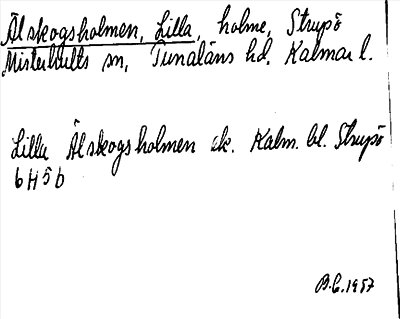 Älskogsholmen, Lilla, holme, Strupö
Misterhults sn, Tunaläns hd, Kalmar l.
Lilla Älskogsholmen ek. Kalm. bl. Strupö
6H5b
B.C. 1957